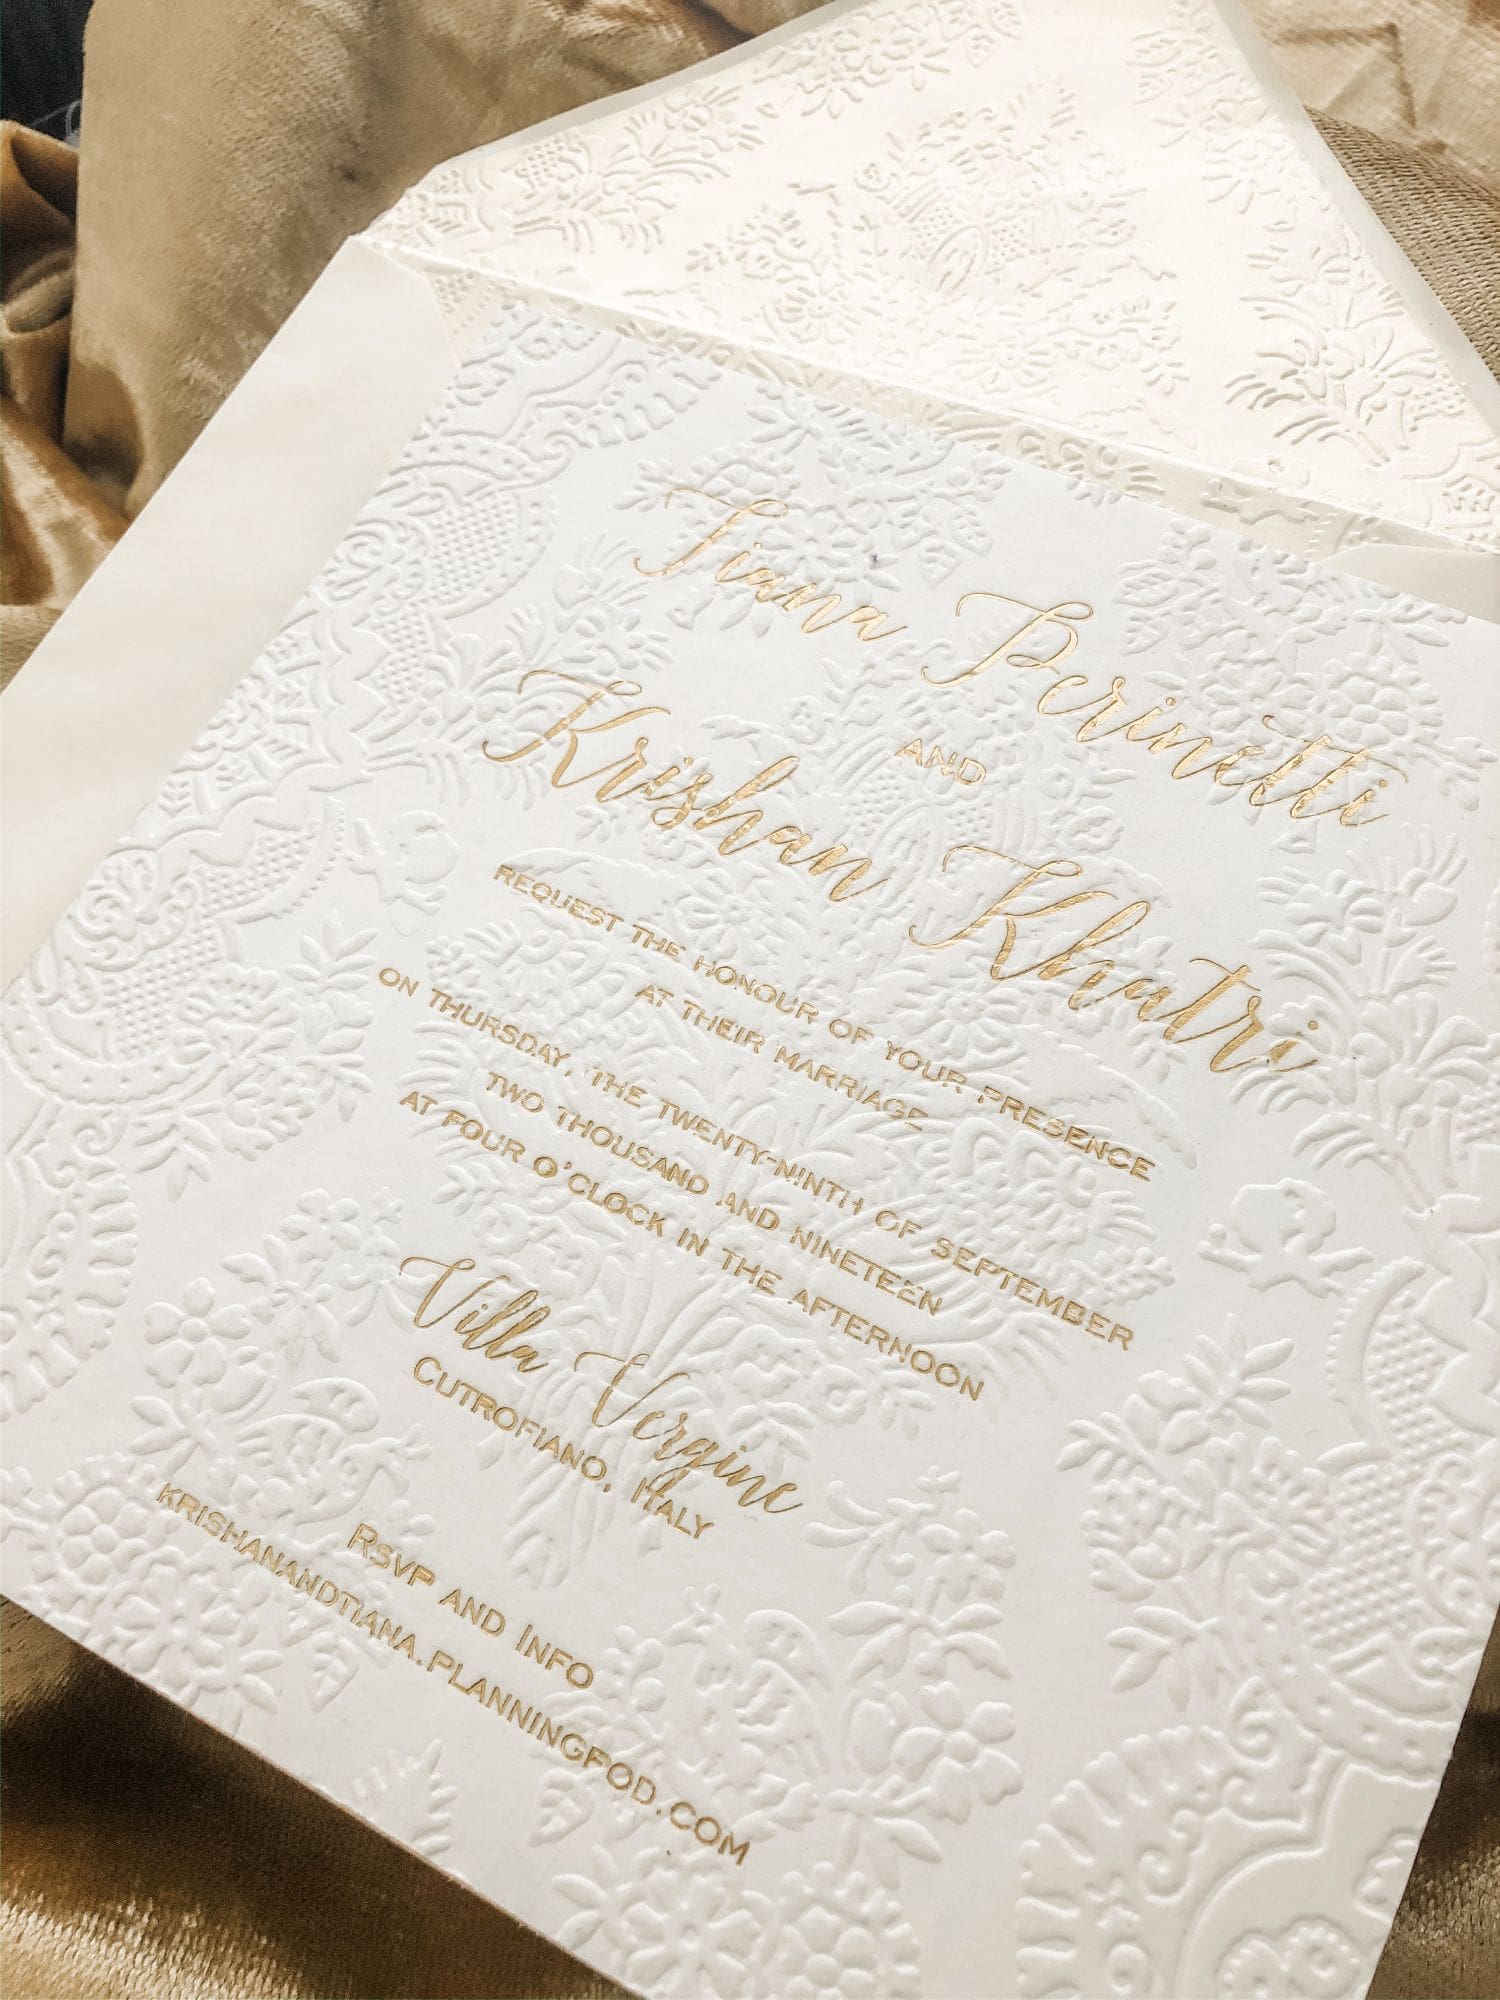 Tiana Perinetti
AND
Krishan Khatri
REQUEST THE HONOUR OF YOUR PRESENCE
AT THEIR MARRIAGE
ON THURSDAY, THE TWENTY-NINTH OF SEPTEMBER
TWO THOUSAND AND NINETEEN
AT FOUR O'CLOCK IN THE AFTERNOON
Villa Vergine
CUTROFIANO, ITALY
RSVP AND INFO
KRISHANANDTIANA.PLANNINGPOD.COM